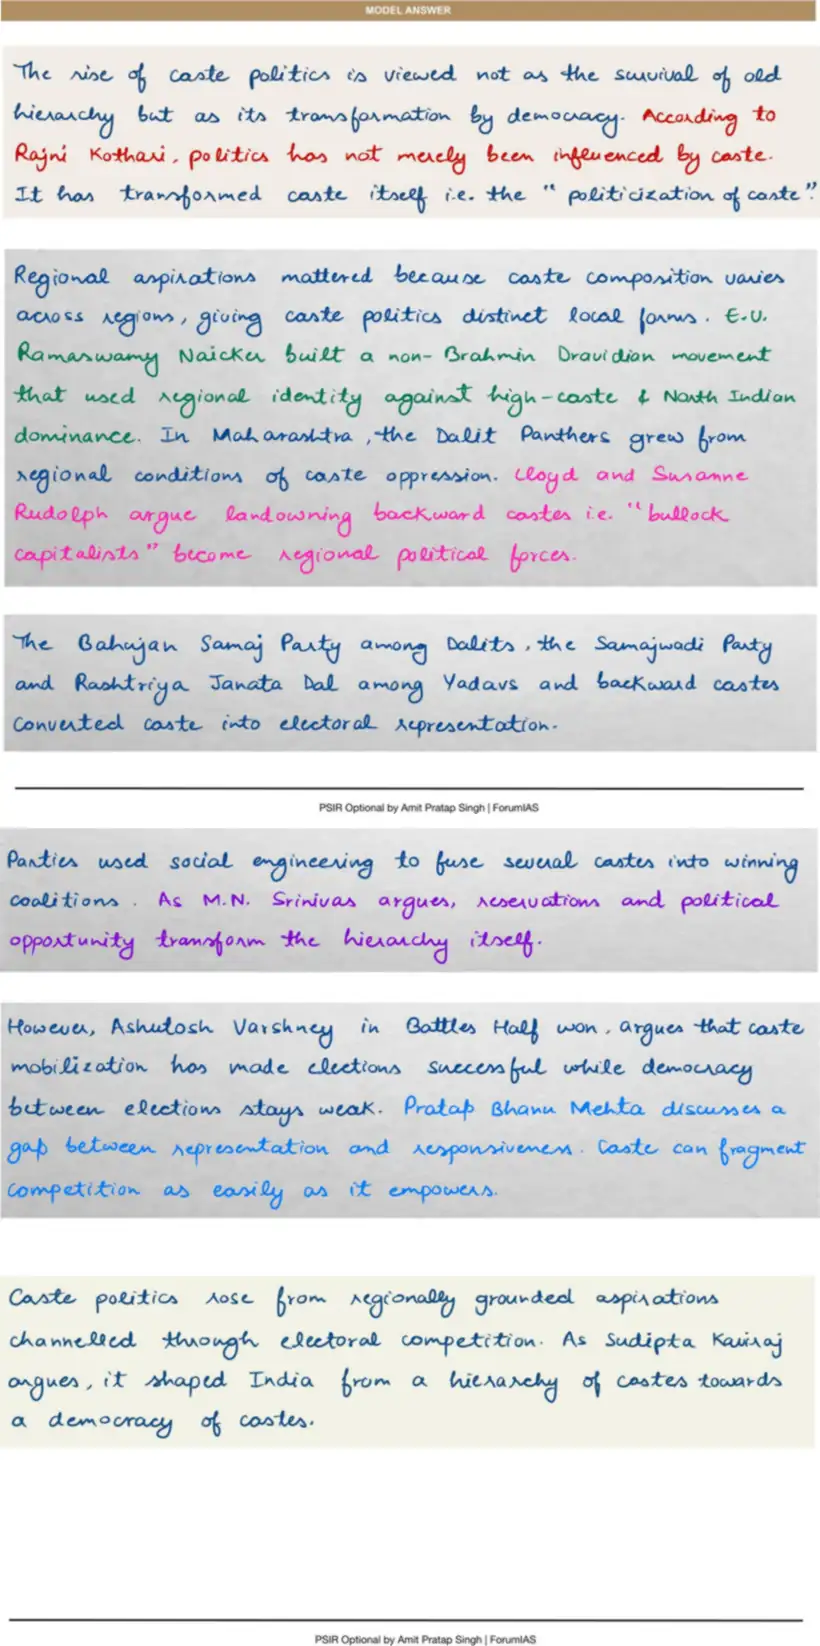 MODEL ANSWER
The rise of caste politics is viewed not as the survival of old
hierarchy but as its transformation by democracy. According to
Rajni Kothari, politics has not merely been influenced by caste.
It has transformed caste itself i.e. the "politicization of caste".
Regional aspirations mattered because caste composition varies
across regions, giving caste politics distinct local forms. E.V.
Ramaswamy Naicker built a non-Brahmin Dravidian movement
that used regional identity against high-caste & North Indian
dominance. In Maharashtra, the Dalit Panthers grew from
regional conditions of caste oppression. Lloyd and Susanne
Rudolph argue landowning backward castes i.e. "bullock
capitalists" become regional political forces.
The Bahujan Samaj Party among Dalits, the Samajwadi Party
and Rashtriya Janata Dal among Yadavs and backward castes
converted caste into electoral representation.
PSIR Optional by Amit Pratap Singh | ForumIAS
Parties used social engineering to fuse several castes into winning
coalitions. As M.N. Srinivas argues, reservations and political
opportunity transform the hierarchy itself.
However, Ashutosh Varshney in Battles Half won, argues that caste
mobilization has made elections successful while democracy
between elections stays weak. Pratap Bhanu Mehta discusses a
gap between representation and responsiveness. Caste can fragment
competition as easily as it empowers.
Caste politics rose from regionally grounded aspirations
channelled through electoral competition. As Sudipta Kaviraj
argues, it shaped India from a hierarchy of castes towards
a democracy of castes.
PSIR Optional by Amit Pratap Singh | ForumIAS